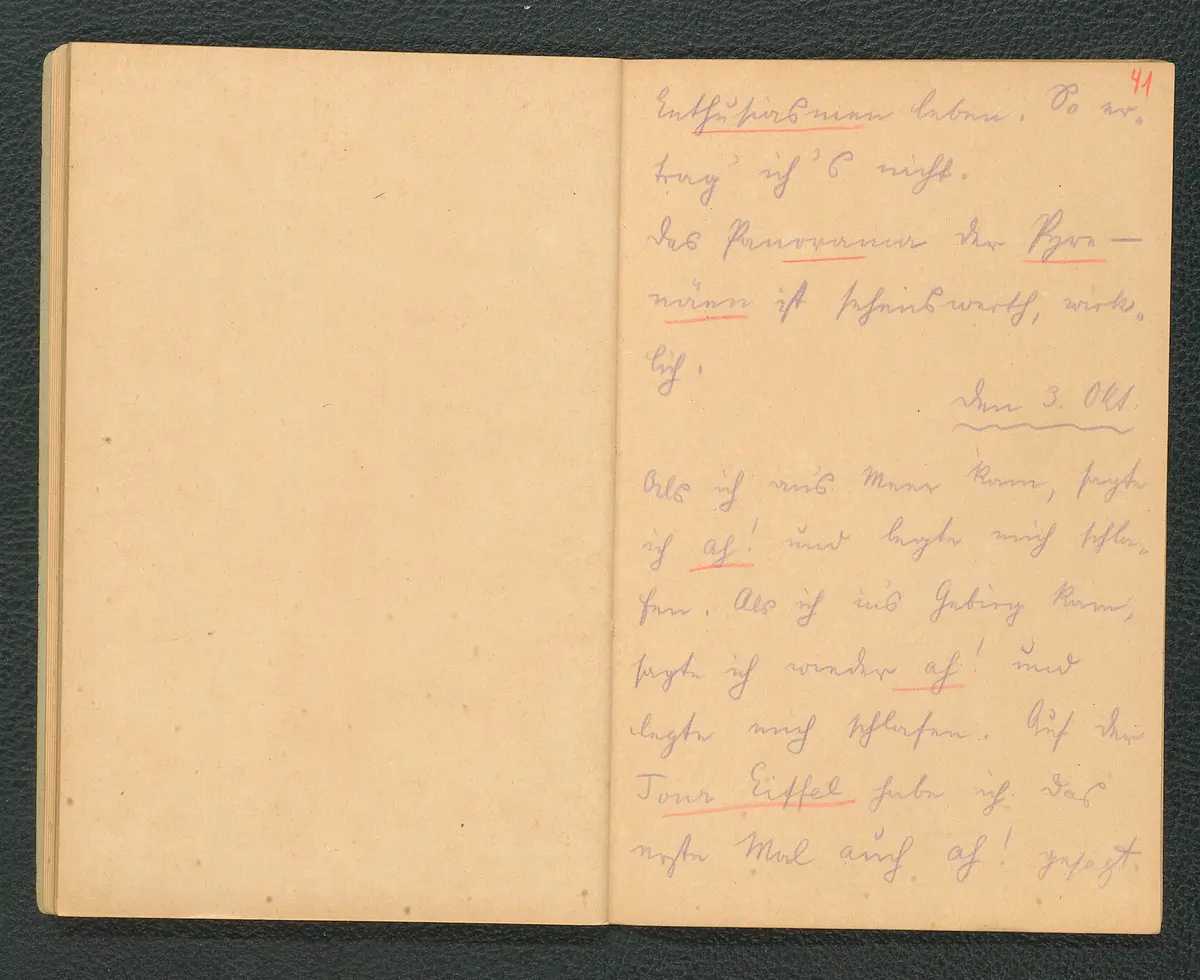 41
Enthusiasmen leben. So er-
trag' ich's nicht.
Das Panorama der Pyre-
näen ist sehenswerth, wirk-
lich.
den 3. Okt.
Als ich ans Meer kam, sagte
ich ah! und legte mich schla-
fen. Als ich in's Gebirg kam,
sagte ich wieder ah! und
legte mich schlafen. Auf der
Tour Eiffel habe ich das
erste Mal auch ah! gesagt